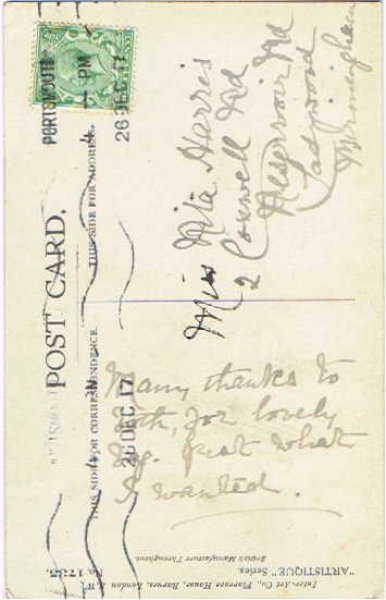 PORTSMOUTH
1 PM
26 DEC 17
POST CARD.
THIS SIDE FOR CORRESPONDENCE.
THIS SIDE FOR ADDRESS.
26 DEC 17
Many thanks to
both, for lovely
Just what
I wanted.
Miss Rita Harris
2 Coxwell Rd
Reservoir Rd
Ladywood
Birmingham
Inter-Art Co., Florence House, Barnes, London S.W.
British Manufacture Throughout.
"ARTISTIQUE" Series. No. 1735.